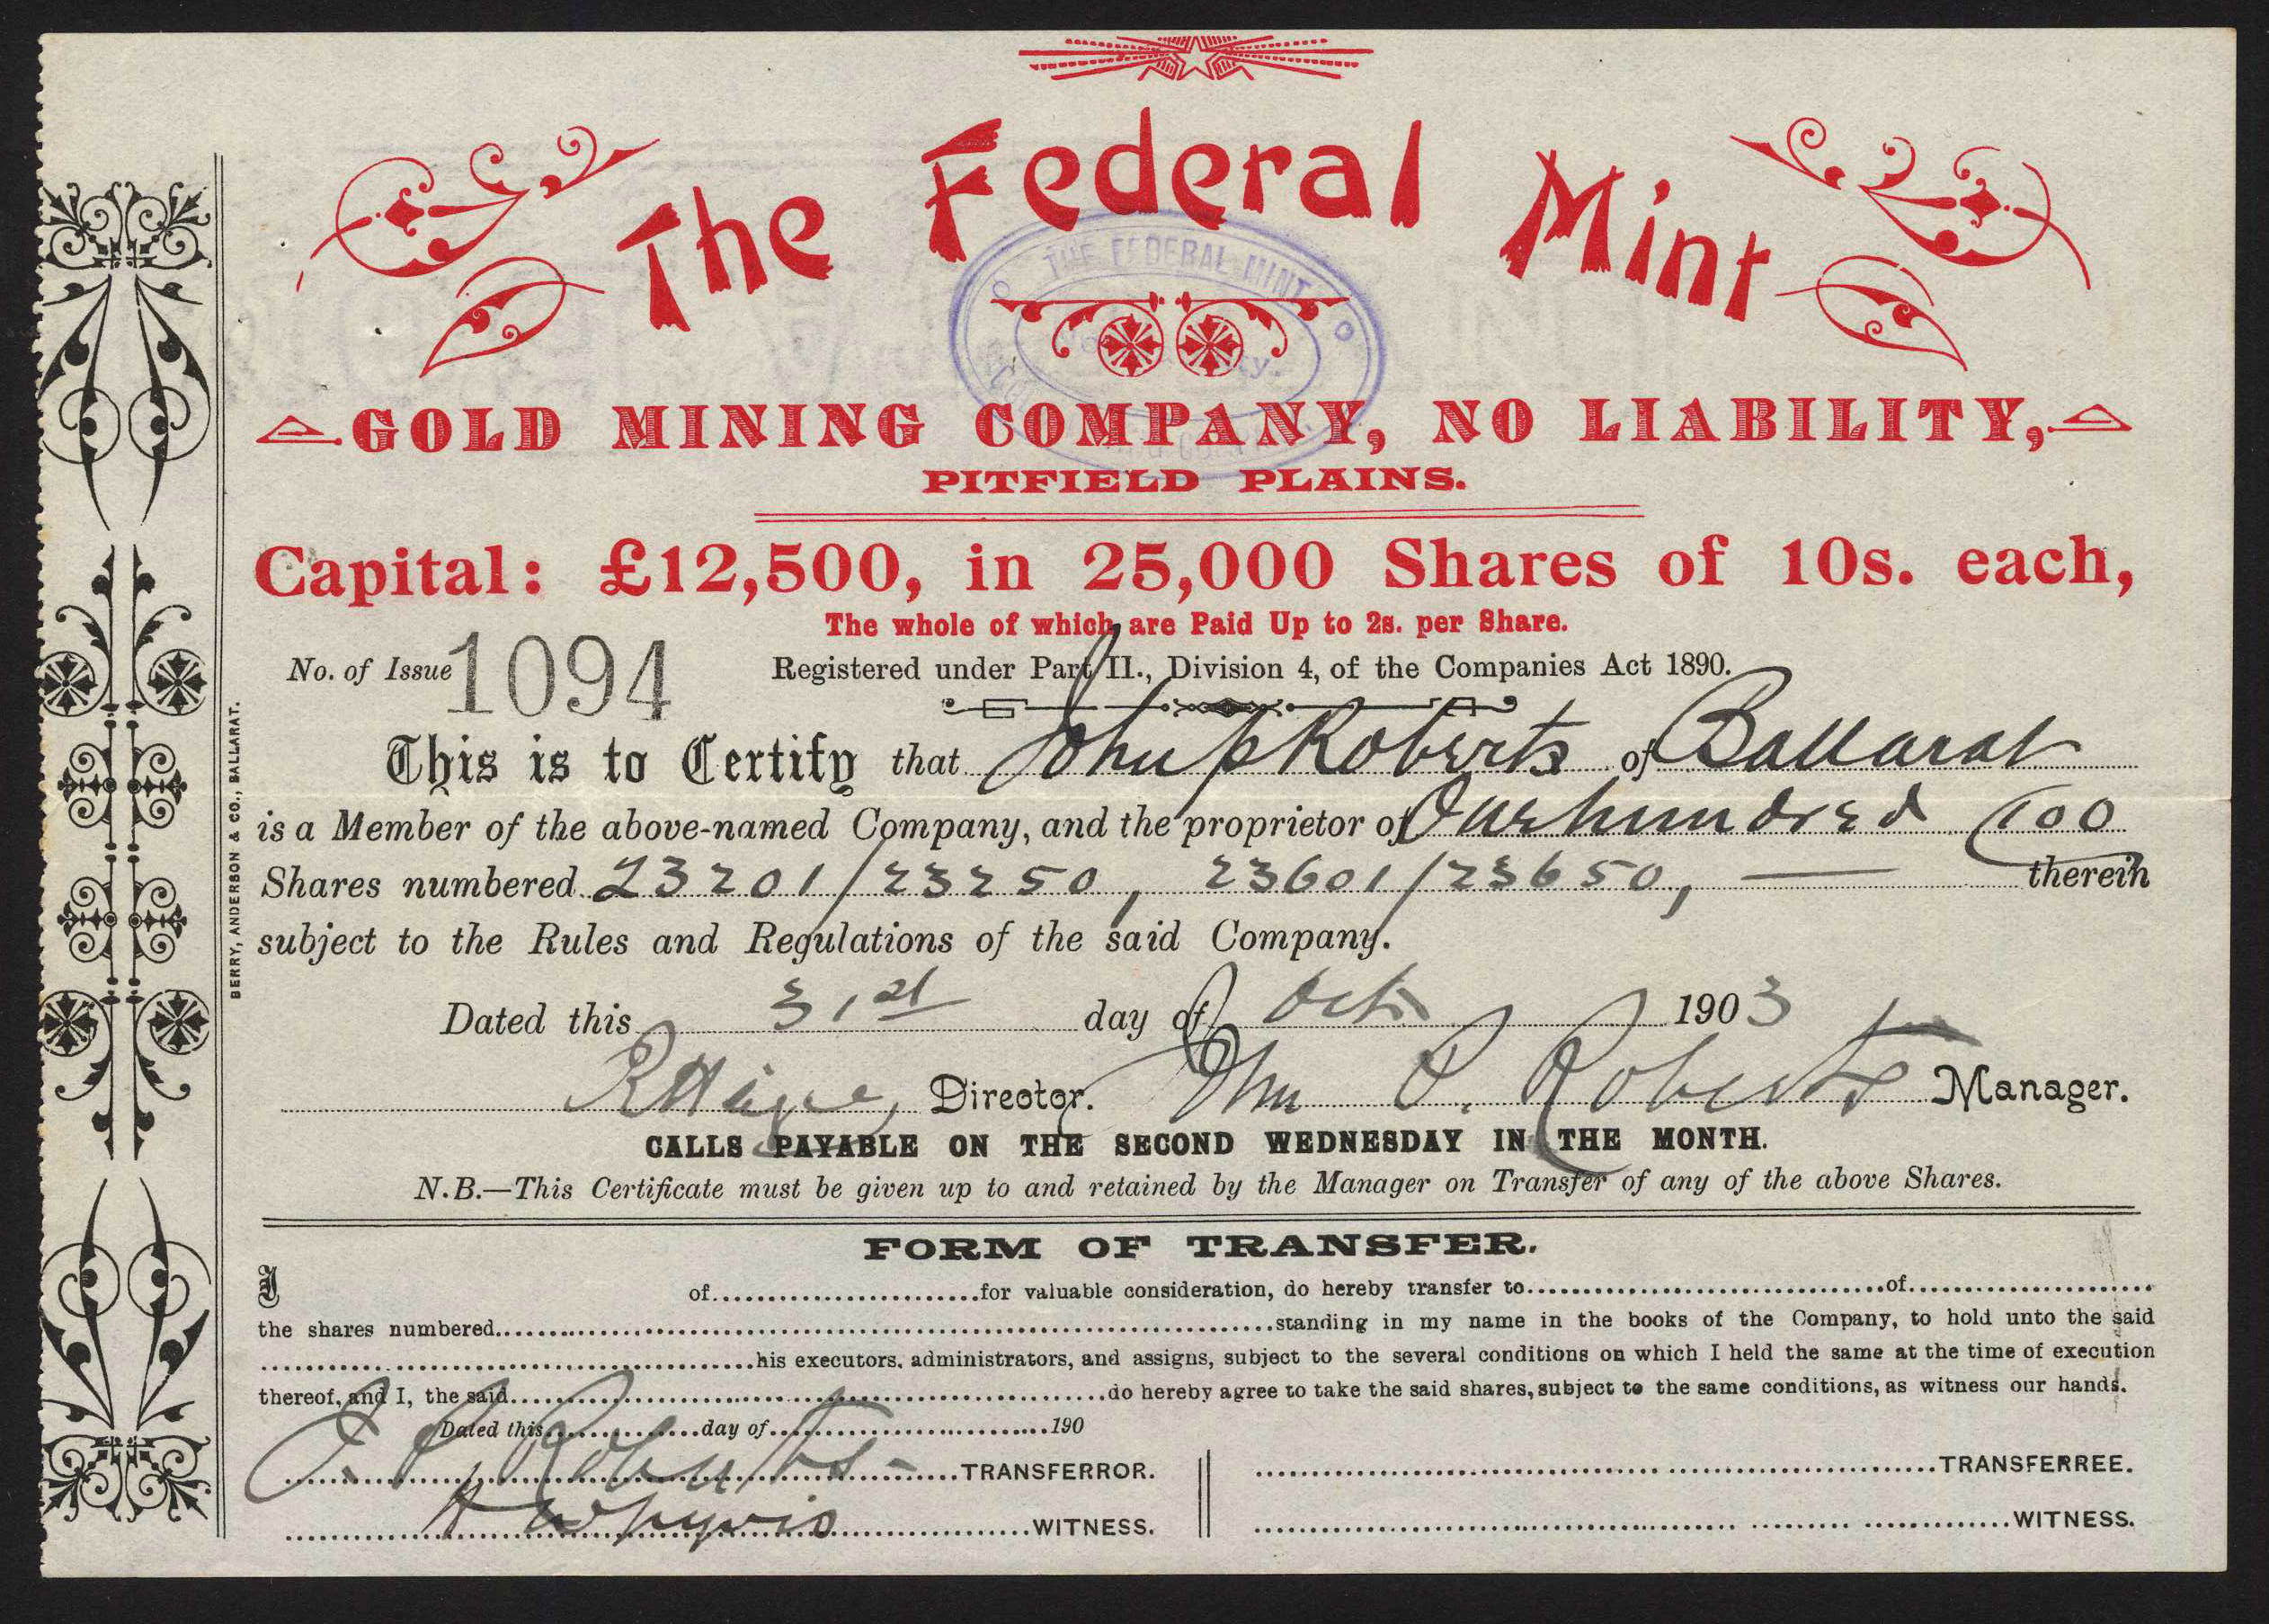 The Federal Mint
THE FEDERAL MINT
GOLD MINING COMPANY, NO LIABILITY,
PITFIELD PLAINS.
Capital: £12,500, in 25,000 Shares of 10s. each,
The whole of which are Paid Up to 2s. per Share.
No. of Issue 1094
Registered under Part II., Division 4, of the Companies Act 1890.
This is to Certify that John P Roberts of Ballarat
is a Member of the above-named Company, and the proprietor of One hundred 100
Shares numbered 23201/23250, 23601/23650, therein
subject to the Rules and Regulations of the said Company.
Dated this 31st day of Oct. 1903
Director. Jhn P. Roberts Manager.
CALLS PAYABLE ON THE SECOND WEDNESDAY IN THE MONTH.
N.B.—This Certificate must be given up to and retained by the Manager on Transfer of any of the above Shares.
FORM OF TRANSFER.
I of for valuable consideration, do hereby transfer to of
the shares numbered standing in my name in the books of the Company, to hold unto the said
his executors, administrators, and assigns, subject to the several conditions on which I held the same at the time of execution
thereof, and I, the said do hereby agree to take the said shares, subject to the same conditions, as witness our hands.
Dated this day of 190
J. P. Roberts TRANSFERROR. TRANSFERREE.
WITNESS. WITNESS.
BERRY, ANDERSON & CO., BALLARAT.